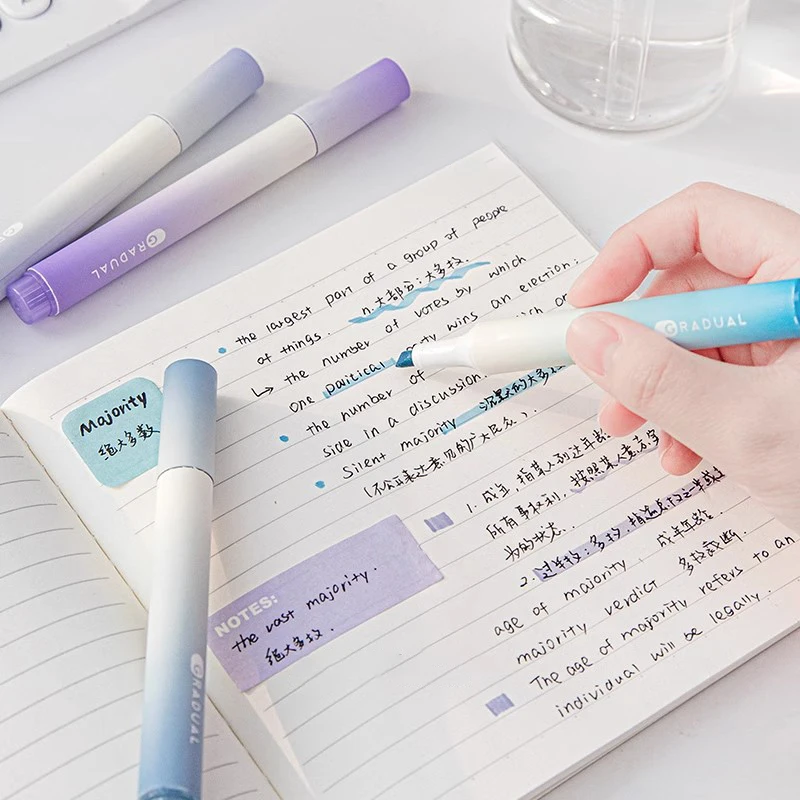 GRADUAL
GRADUAL
GRADUAL
Majority
绝大多数
the largest part of a group of people
or things. n.大部分;大多数.
↳ the number of votes by which
one paitical party wins an election;
the number of
side in a discussion.
Silent majority 沉默的大多数
(不公开表达意见的广大民众).
1. 成年, 指某人到达年龄
所有事权利, 按照某人意
为的状态.
2. 过半数; 多数, 指
age of majority, 成年年龄.
majority verdict 多数裁断.
The age of majority refers to an
individual will be legally.
NOTES:
the vast majority.
绝大多数.